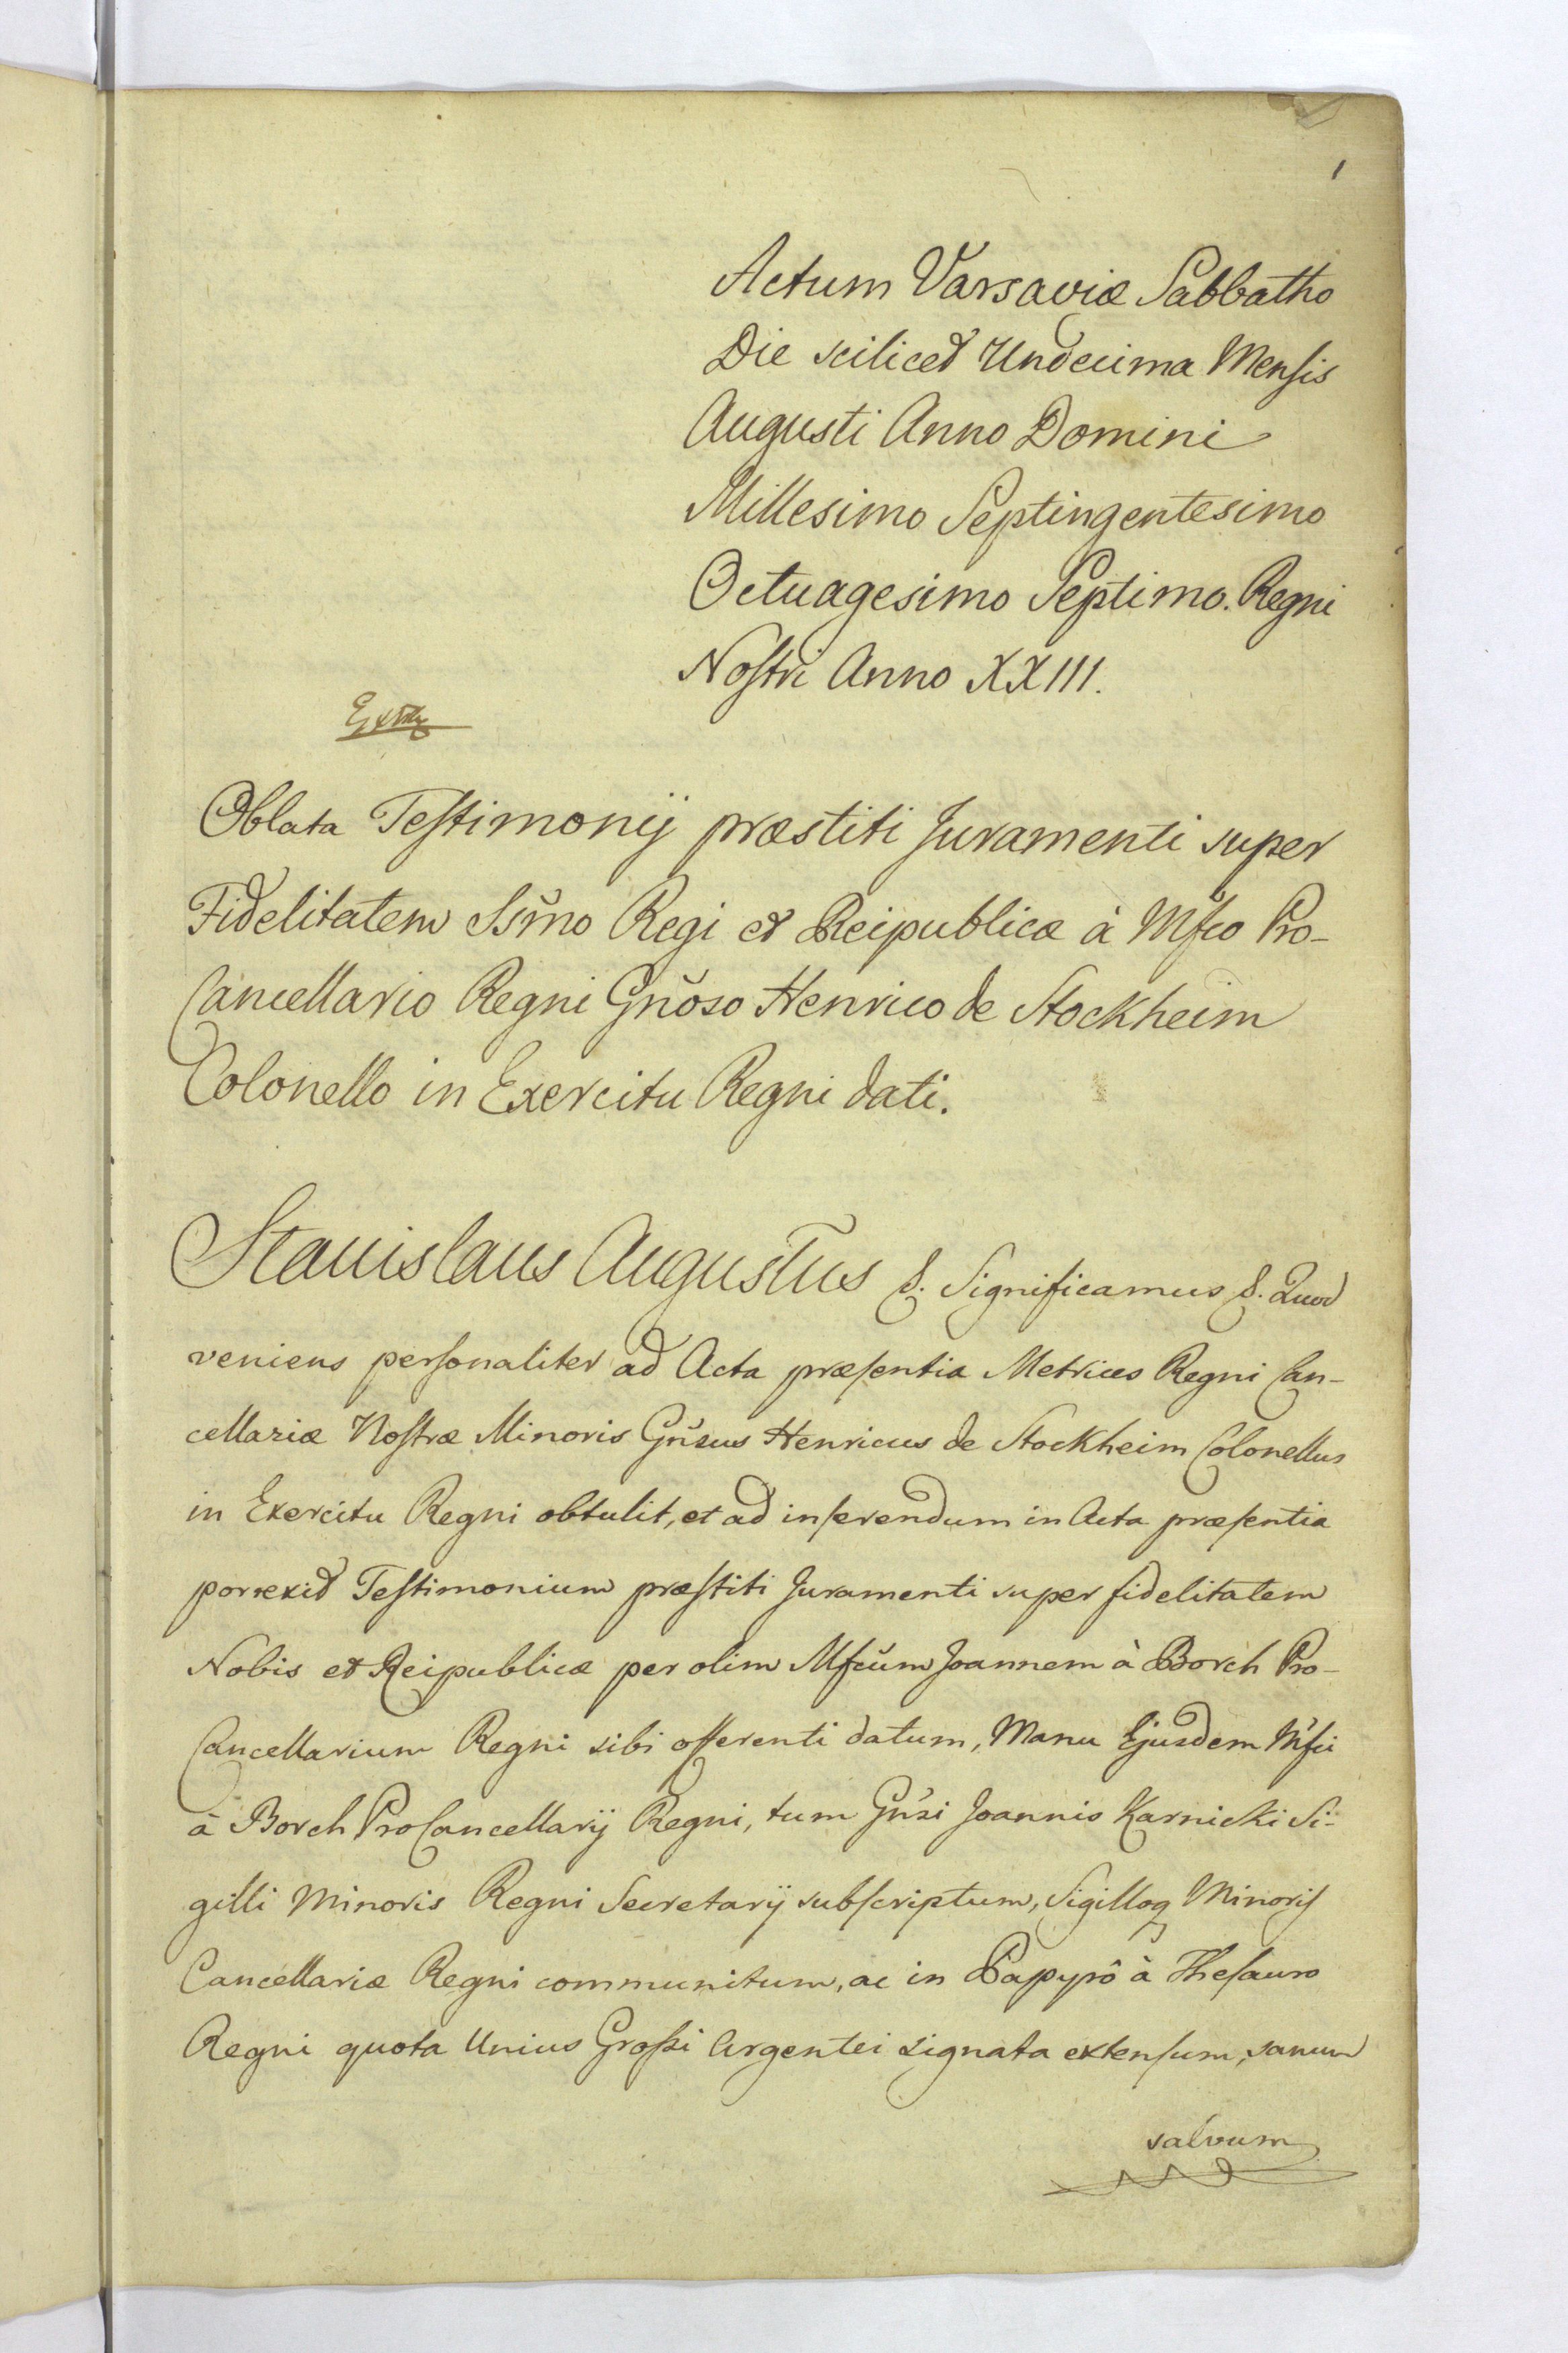 1
Actum Varsaviæ Sabbatho
Die scilicet Undecima Mensis
Augusti Anno Domini
Millesimo Septingentesimo
Octuagesimo Septimo. Regni
Nostri Anno XXIII.
Oblata Testimonij præstiti Juramenti super
Fidelitatem Ssm̃o Regi et Reipublicæ à Mfco Pro-
Cancellario Regni Gñoso Henrico de Stockheim
Colonello in Exercitu Regni dati.
Stanislaus Augustus &. Significamus &. Quod
veniens personaliter ad Acta præsentia Metrices Regni Can-
cellariæ Nostræ Minoris Gñsus Henricus de Stockheim Colonellus
in Exercitu Regni obtulit, et ad inserendum in Acta præsentia
porrexit Testimonium præstiti Juramenti super fidelitatem
Nobis et Reipublicæ per olim Mfcum Joannem à Borch Pro-
Cancellarium Regni sibi offerenti datum, Manu Ejusdem Mfci
à Borch ProCancellarij Regni, tum Gñsi Joannis Karnicki Si-
gilli Minoris Regni Secretarij subscriptum, Sigilloq Minoris
Cancellariæ Regni communitum, ac in Papyrô à Thesauro
Regni quota Unius Grossi Argentei signata extensum, sanum
salvum